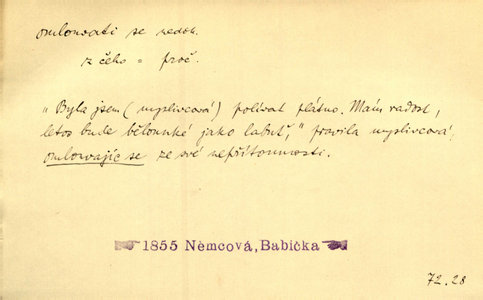 omlouvati se nedok.
z čeho = proč.
„Byla jsem (myslivcová) polívat plátno. Mám radost,
letos bude bělounké jako labuť," pravila myslivcová,
omlouvajíc se ze své nepřítomnosti.
1855 Němcová, Babička
72.28